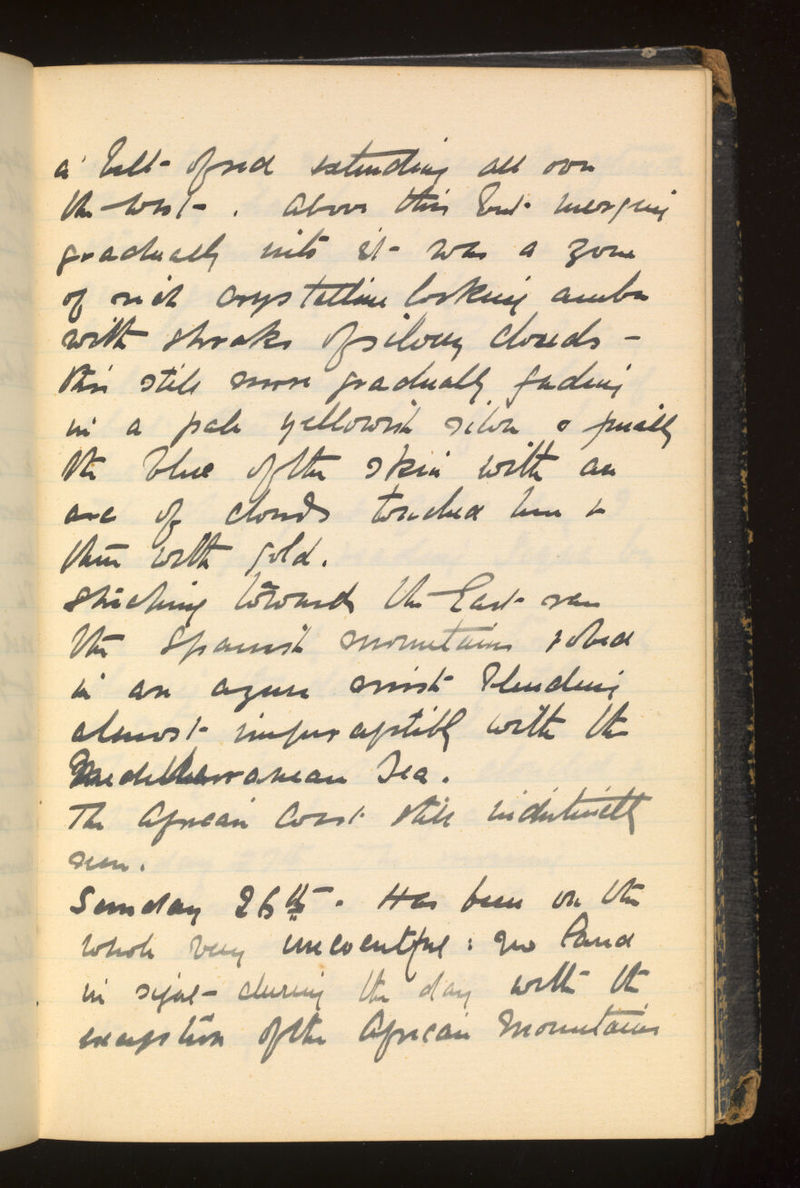 a belt of red extending all over
the west. Above this but merging
gradually into it was a zone
of rich crystalline looking amber
with streaks of silvery clouds -
this still more gradually fading
in a pale yellowish silver & finally
the blue of the skies with an
arc of clouds touched here &
there with gold.
Stretching towards the East ran
the Spanish mountains robed
in an azure mist blending
almost imperceptibly with the
Mediterranean Sea.
The African Coast still indistinctly
seen.
Sunday 26th. Has been on the
whole very uneventful: no land
in sight during the day with the
exception of the African Mountains